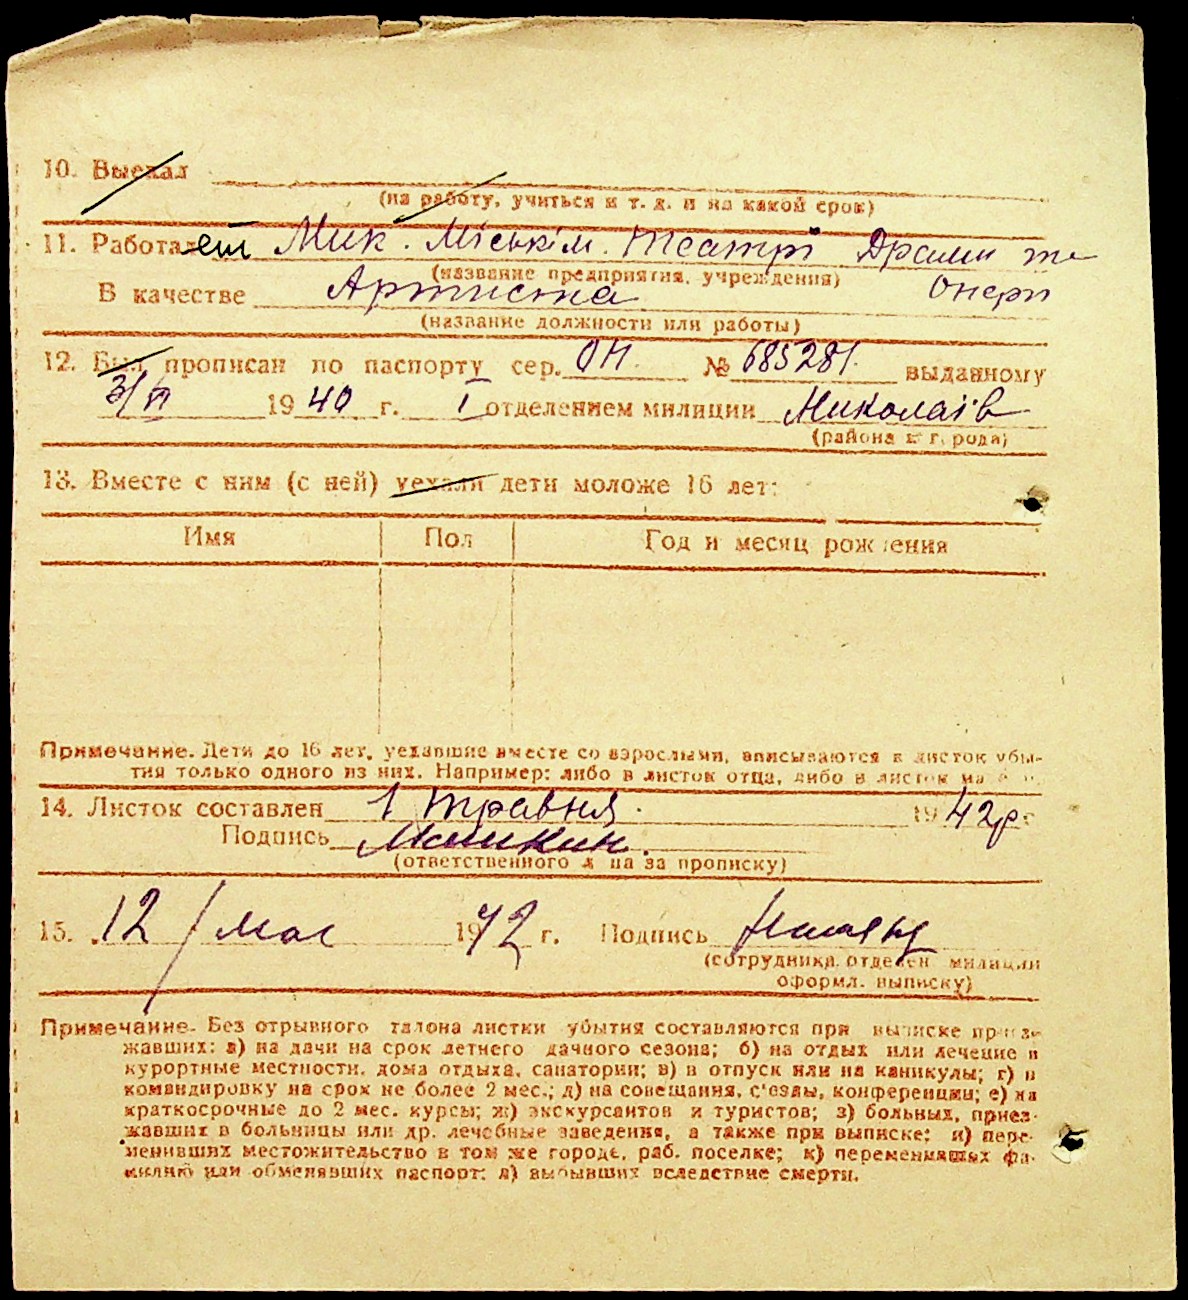 10. Выехал
(на работу, учиться и т. д. и на какой срок)
11. Работает Мик. Міськім. Театрі Драми та
(название предприятия, учреждения)
Опери
В качестве Артистка
(название должности или работы)
12. Был прописан по паспорту сер. ОП. № 685281. выданному
3/VI 1940 г. I отделением милиции Миколаїв
(района и города)
13. Вместе с ним (с ней) уехали дети моложе 16 лет:
Имя Пол Год и месяц рождения
Примечание. Дети до 16 лет, уехавшие вместе со взрослыми, вписываются в листок убы-
тия только одного из них. Например: либо в листок отца, либо в листок
14. Листок составлен 1 травня 1942 р
Подпись
(ответственного л на за прописку)
15. 12 / мая 1942 г. Подпись
(сотрудника отделен милиции
оформл. выписку)
Примечание. Без отрывного талона листки убытия составляются при выписке приез-
жавших: а) на дачи на срок летнего дачного сезона; б) на отдых или лечение в
курортные местности, дома отдыха, санатории; в) в отпуск или на каникулы; г) в
командировку на срок не более 2 мес.; д) на совещания, с'езды, конференции; е) на
краткосрочные до 2 мес. курсы; ж) экскурсантов и туристов; з) больных, приез-
жавших в больницы или др. лечебные заведения, а также при выписке: и) пере-
менивших местожительство в том же городе, раб. поселке; к) переменивших фа-
милию или обменявших паспорт: л) выбывших вследствие смерти.